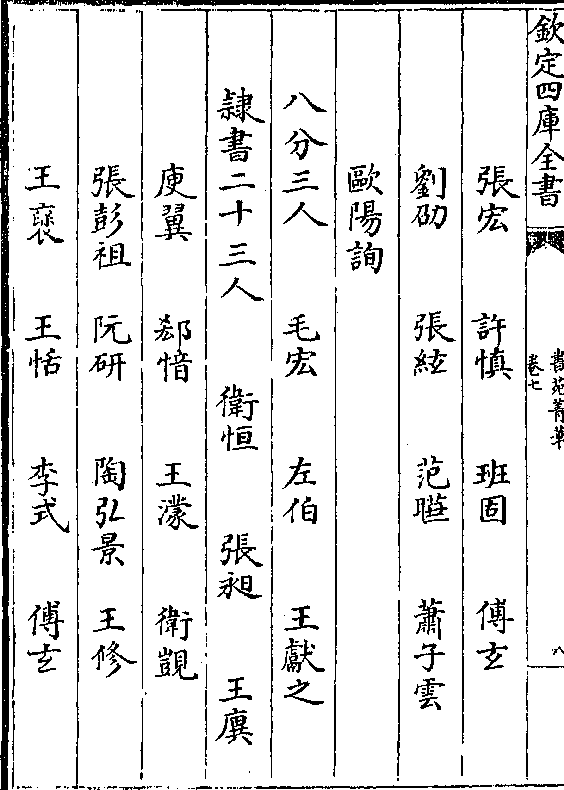 欽定四庫全書
書苑菁華
卷七
八
張宏 許慎 班固 傅玄
劉劭 張紘 范曄 蕭子雲
歐陽詢
八分三人 毛宏 左伯 王獻之
隷書二十三人 衛恒 張昶 王廙
庾翼 郄愔 王濛 衛覬
張彭祖 阮研 陶弘景 王修
王襃 王恬 李式 傅玄